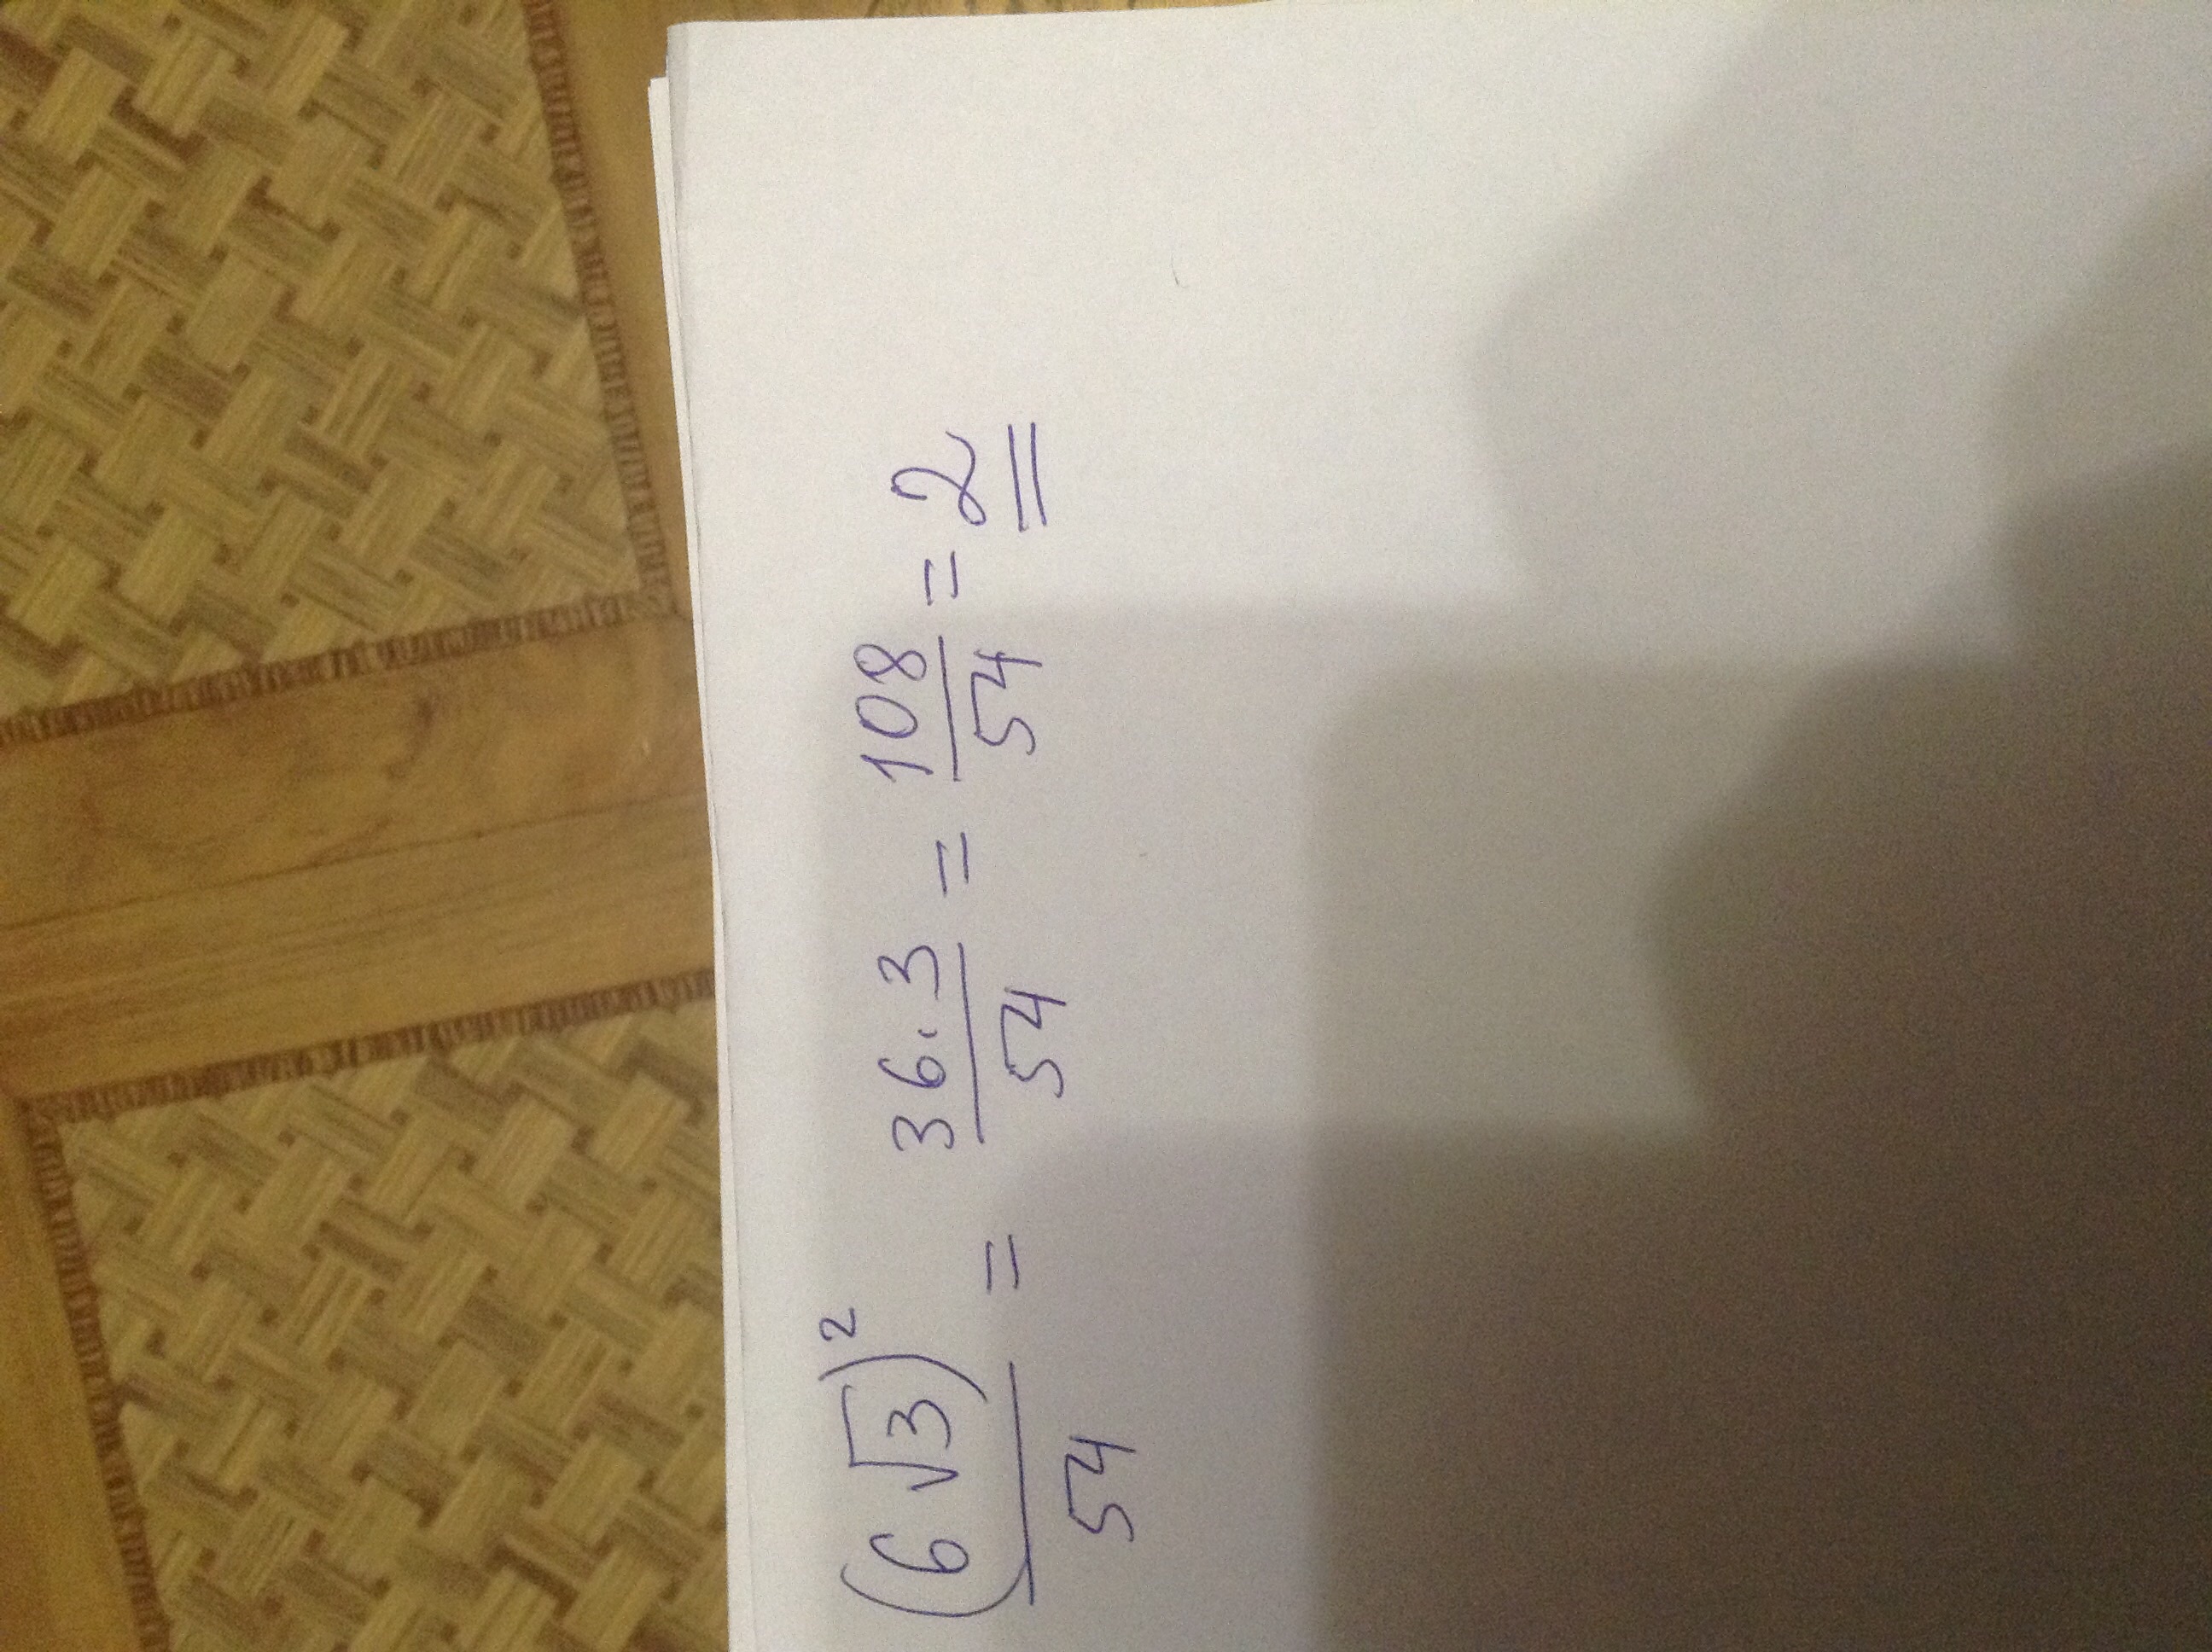 (6√3)²/54 = 36·3/54 = 108/54 = 2